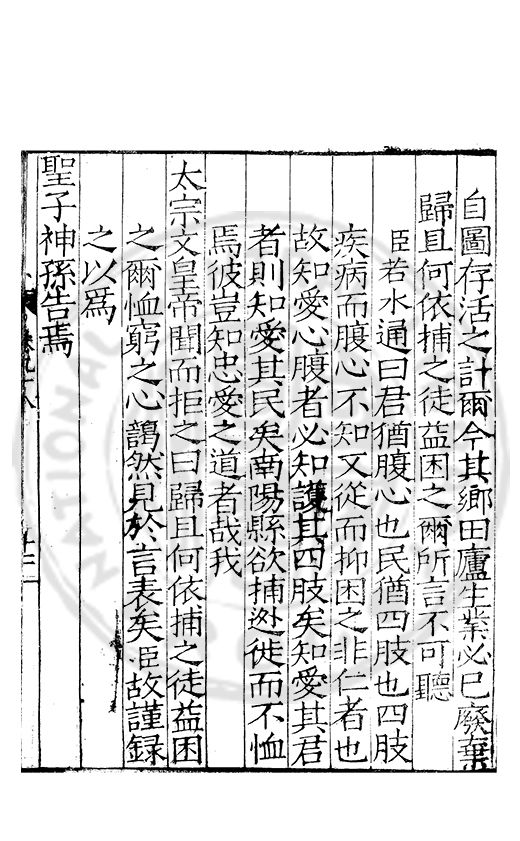 自圖存活之計爾今其鄉田廬生業必已廢棄
歸且何依捕之徒益困之爾所言不可聽
臣若水通曰君猶腹心也民猶四肢也四肢
疾病而腹心不知又從而抑困之非仁者也
故知愛心腹者必知護其四肢矣知愛其君
者則知愛其民矣南陽縣欲捕迯徙而不恤
焉彼豈知忠愛之道者哉我
太宗文皇帝聞而拒之曰歸且何依捕之徒益困
之爾恤窮之心藹然見於言表矣臣故謹録
之以爲
聖子神孫告焉